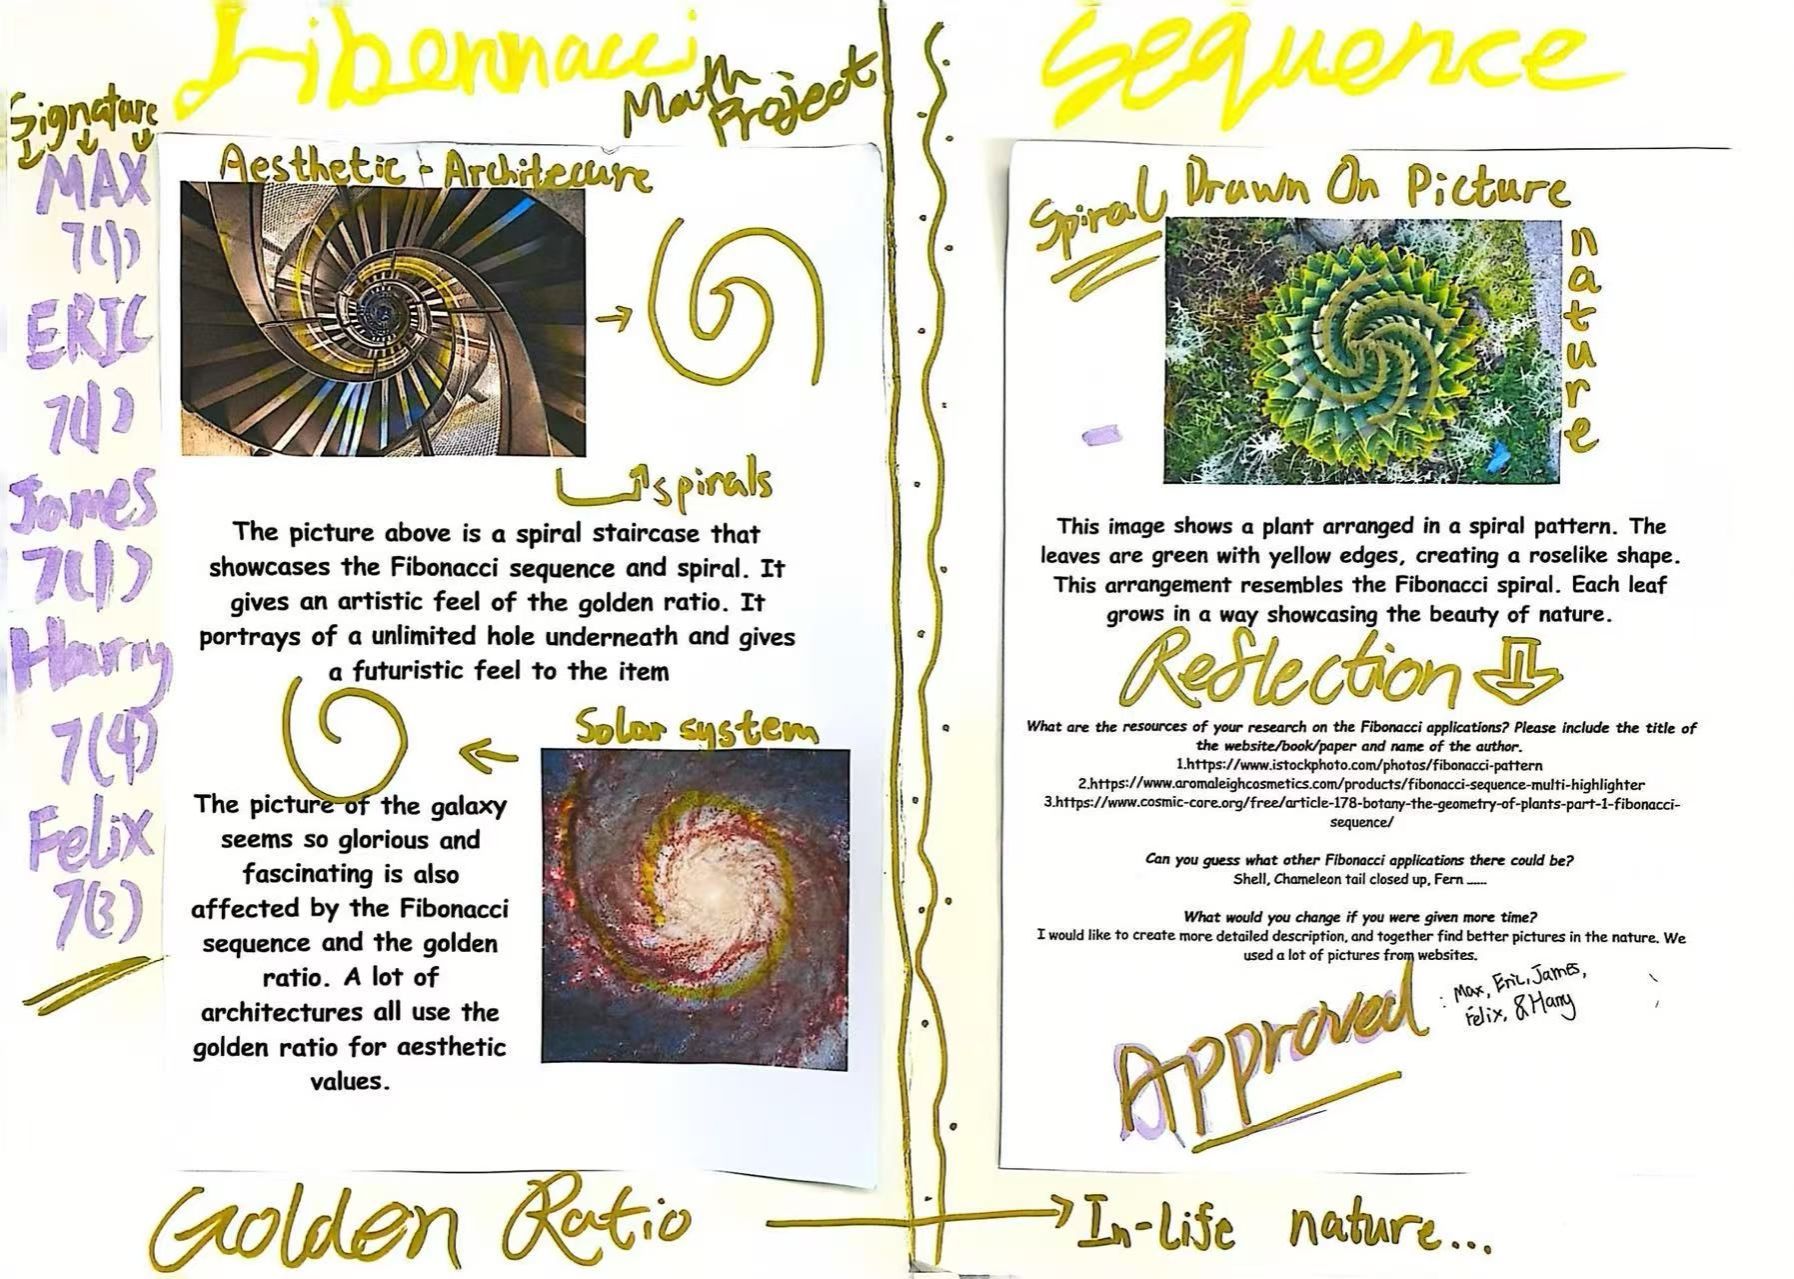 Fibonnacci Sequence
Math
Project
Signature
MAX
7(1)
ERIC
7(1)
James
7(1)
Harry
7(4)
Felix
7(3)
Aesthetic - Architecure
spirals
The picture above is a spiral staircase that
showcases the Fibonacci sequence and spiral. It
gives an artistic feel of the golden ratio. It
portrays of a unlimited hole underneath and gives
a futuristic feel to the item
Solar system
The picture of the galaxy
seems so glorious and
fascinating is also
affected by the Fibonacci
sequence and the golden
ratio. A lot of
architectures all use the
golden ratio for aesthetic
values.
Golden Ratio
Spiral Drawn On Picture
nature
This image shows a plant arranged in a spiral pattern. The
leaves are green with yellow edges, creating a roselike shape.
This arrangement resembles the Fibonacci spiral. Each leaf
grows in a way showcasing the beauty of nature.
Reflection
What are the resources of your research on the Fibonacci applications? Please include the title of
the website/book/paper and name of the author.
1.https://www.istockphoto.com/photos/fibonacci-pattern
2.https://www.aromaleighcosmetics.com/products/fibonacci-sequence-multi-highlighter
3.https://www.cosmic-core.org/free/article-178-botany-the-geometry-of-plants-part-1-fibonacci-
sequence/
Can you guess what other Fibonacci applications there could be?
Shell, Chameleon tail closed up, Fern ......
What would you change if you were given more time?
I would like to create more detailed description, and together find better pictures in the nature. We
used a lot of pictures from websites.
Approved
: Max, Eric, James,
Felix, & Harry
In-Life nature...